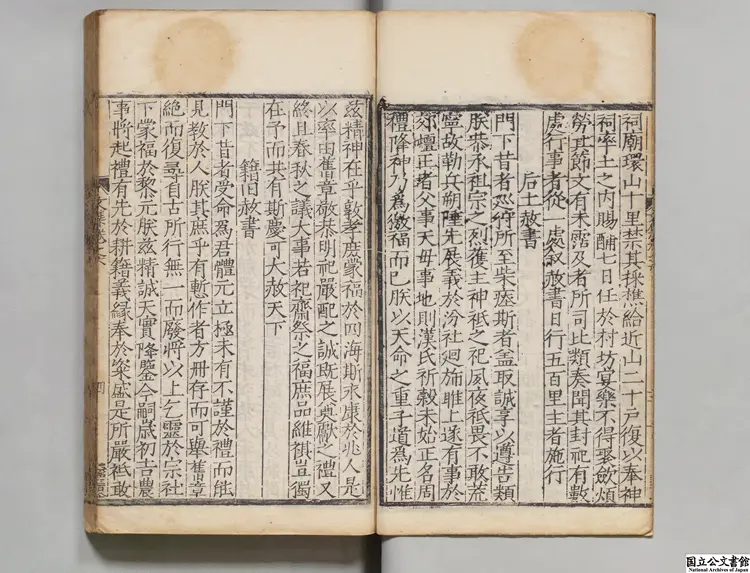 祠廟環山十里禁其採樵給近山二十戸復以奉神
祠率土之内賜酺七日任於村坊宴樂不得聚斂煩
勞其節文有未霑及者所司比類奏聞其封祀有數
處行事者從一處叙赦書日行五百里主者施行
后土赦書
門下昔者巡狩所至柴燎斯者盖取誠享以遵告類
朕恭承祖宗之烈獲主神祇之祀夙夜祗畏不敢荒
寧故勒兵朔陲先展義於汾社廻旆脽上遂有事於
郊壇正者父事天母事地則漢氏祈穀未始正名周
禮降神乃為徼福而已朕以天命之重子道為先惟
兹精神在乎敦孝庶蒙福於四海斯永康於兆人是
以率由舊章敬恭明祀嚴配之誠既展奠獻之禮又
終且春秋之議大事若祀齋祭之福庶品維祺豈獨
在予而共有斯慶可大赦天下
籍田赦書
門下昔者受命為君體元立極未有不謹於禮而能
見教於人朕其庶乎有慙作者方册存而可舉舊章
絶而復尋自古所行無一而廢將以上乞靈於宗社
下蒙福於黎元朕兹精誠天實降鑒今嗣歳初吉農
事將起禮有先於耕籍義緣奉於粢盛是所嚴祗敢
国立公文書館
National Archives of Japan